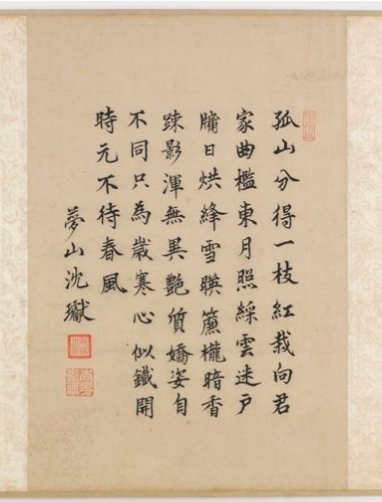 孤山分得一枝紅栽向君
家曲檻東月照綵雲迷戶
牖日烘絳雪暎簾櫳暗香
踈影渾無異艷質嬌姿自
不同只為歲寒心似鐵開
時元不待春風
夢山沈瓛